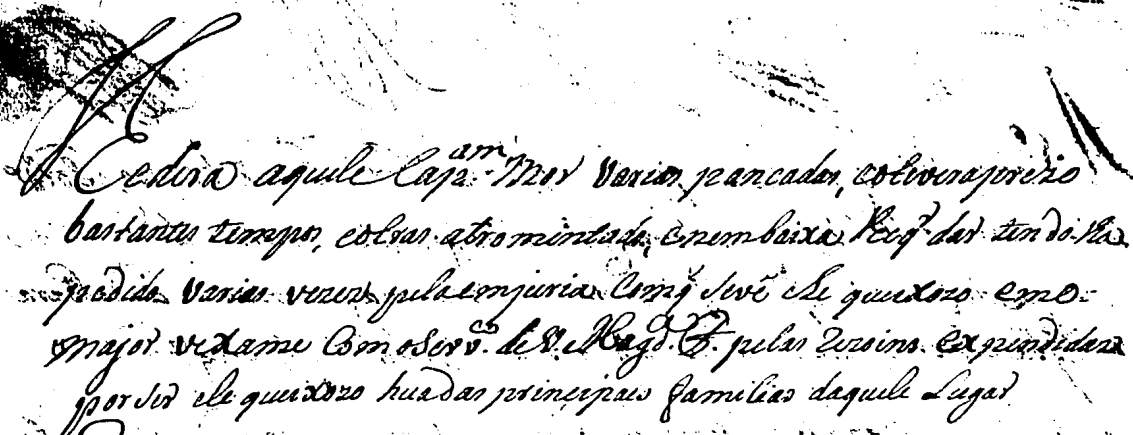 e dera aquele Cap.am Mor varias pancadas, eotivera prezo
bastantes tempos, eotras atromintado, enembaixa Req.r dar tendo lha
pedido varias vezes pela emjuria Comq̃ sevẽ elle queixozo emo=
major vexame Como Serv.co de V. Mag.de F. pelas rezoins expendidas
por ser ele queixozo huã das principais familias daquele Lugar